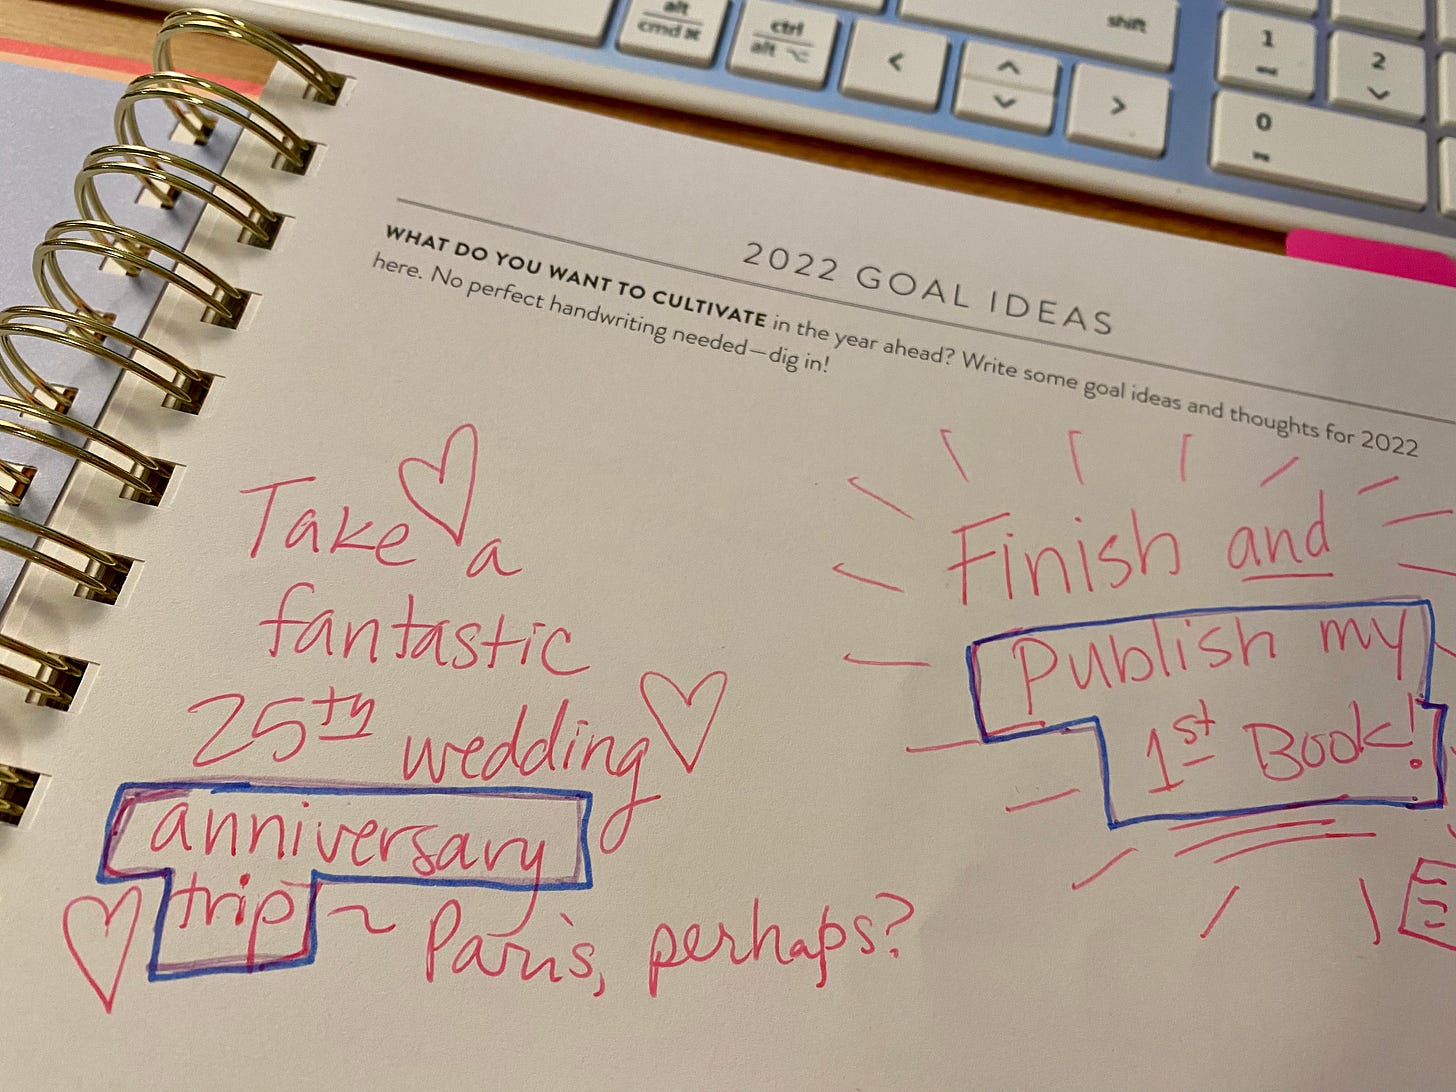 alt
cmd ⌘
ctrl
alt ⌥
<
^
⌄
>
shift
1
2
0
2022 GOAL IDEAS
WHAT DO YOU WANT TO CULTIVATE in the year ahead? Write some goal ideas and thoughts for 2022
here. No perfect handwriting needed—dig in!
Take a
fantastic
25th wedding
anniversary
trip ~ Paris, perhaps?
Finish and
Publish my
1st Book!